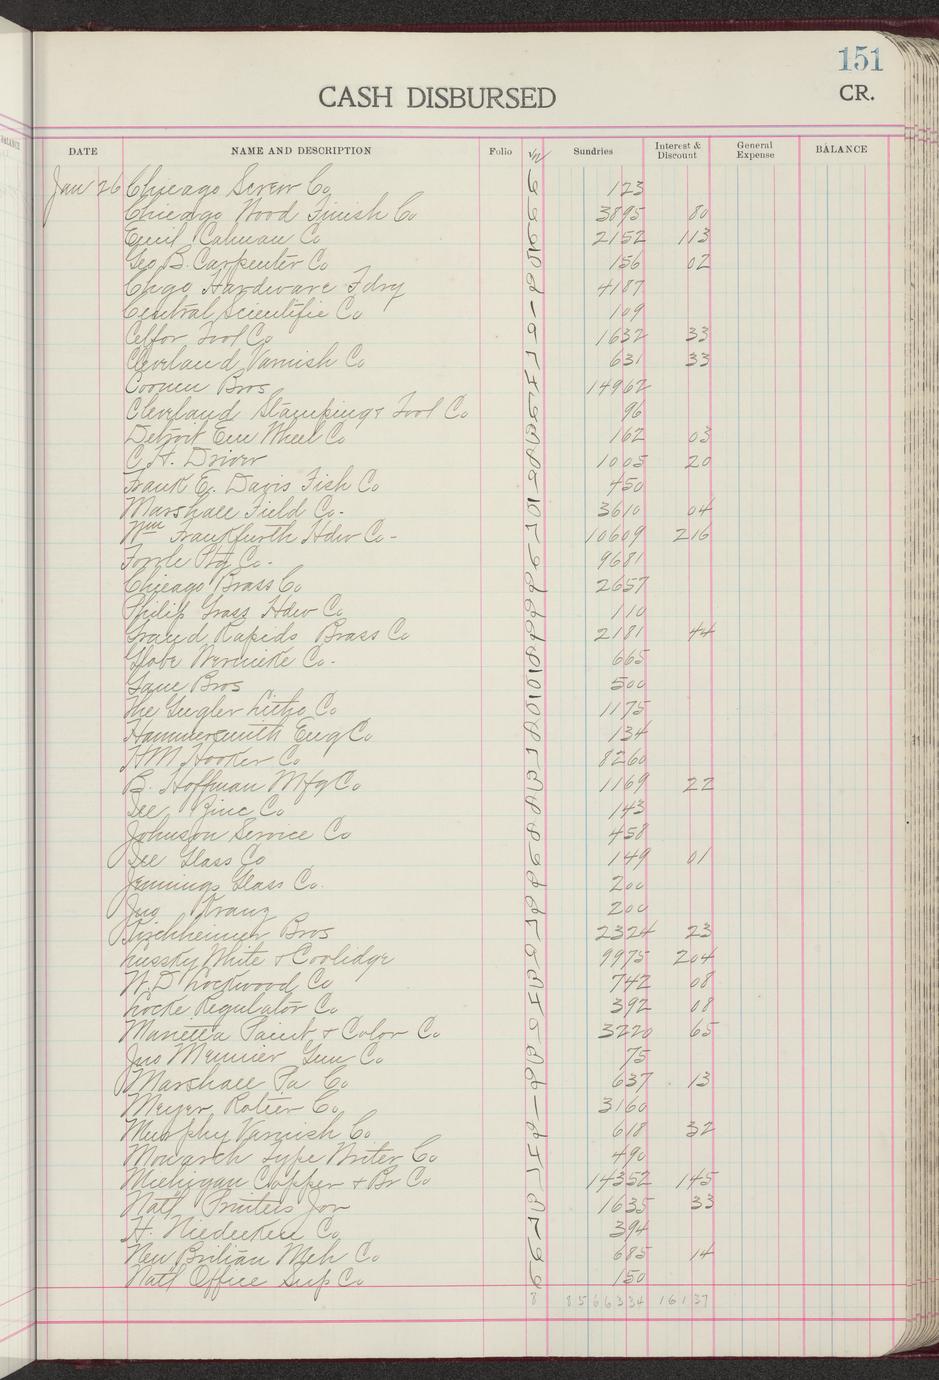 151
CASH DISBURSED
CR.
DATE NAME AND DESCRIPTION Folio Sundries Interest & Discount General Expense BALANCE
Jan 26 Chicago Screw Co 123
Chicago Wood Finish Co 3895 80
Emil Calman Co 2152 113
Geo B. Carpenter Co 156 02
Chgo Hardware Fdry 4187
Central Scientific Co 109
Celfor Tool Co 1632 33
Cleveland Varnish Co 631 33
Coonen Bros 14962
Cleveland Stamping & Tool Co 96
Detroit Em Wheel Co 162 03
C.H. Driver 1005 20
Frank E. Davis Fish Co 450
Marshall Field Co - 3610 04
Wm Frankfurth Hdw Co - 10609 216
Co - 9681
Chicago Brass Co 2657
Philip Grass Hdw Co 110
Grand Rapids Brass Co 2181 44
Globe Wernicke Co - 665
Bros 500
The Gugler Litho Co 1175
Hammersmith Eng Co 134
H M Hooker Co 8260
B. Hoffman Mfg Co 1169 22
Zinc Co 143
Johnson Service Co 458
Glass Co 149 01
Jennings Glass Co. 200
Jno Kranz 200
Kirchheimer Bros 2324 23
Lussky White & Coolidge 9975 204
W. D Lockwood Co 742 08
Locke Regulator Co 392 08
Marietta Paint & Color Co 3220 65
Jno Meunier Gun Co 75
Marshall Pa Co 637 13
Meyer Rotier Co 3160
Murphy Varnish Co 618 32
Monarch Type Writer Co 490
Michigan Copper & Br Co 14352 145
Natl Printers 1635 33
H. Niedecken Co 394
New Britian Mch Co 685 14
Natl Office Sup Co 150
8 8566334 16137